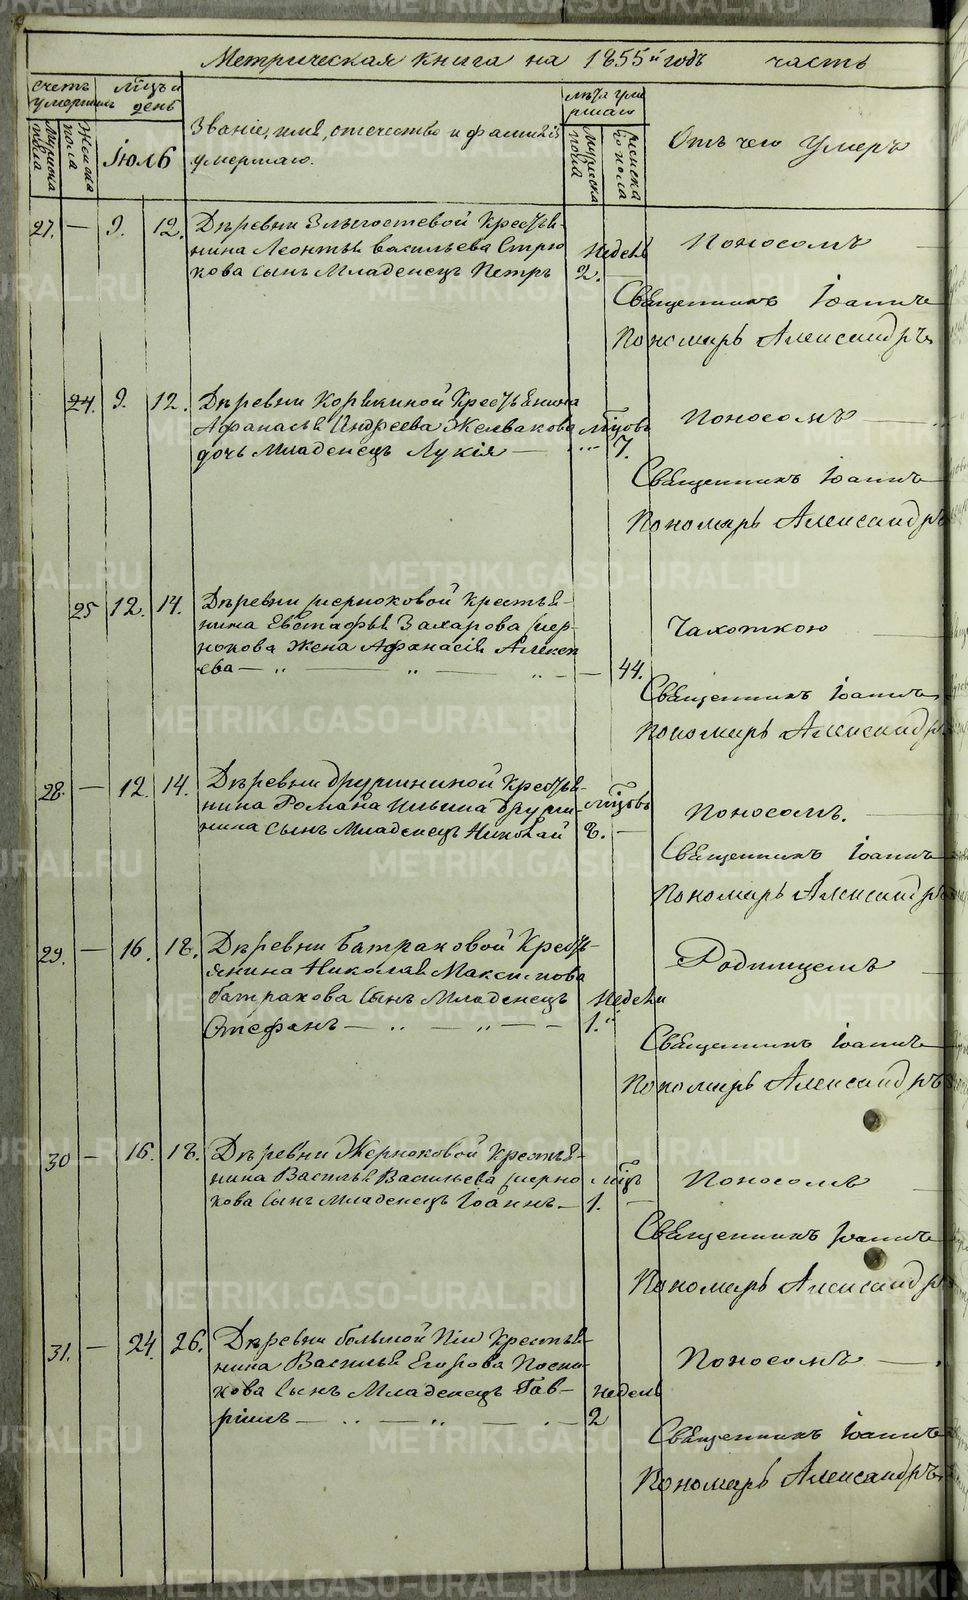 Метрическая книга на 1855й годъ часть
счетъ умершихъ
мѣсяцъ и день
Званіе, имя, отечество и фамилія умершаго.
лѣта умершаго
Отъ чего умеръ
мужска пола
женска пола
Іюль
мужска пола
женска пола
27. — 9. 12. Деревни
нина Леонтья Васильева
кова сынъ Младенецъ Петръ
недель 2.
Поносомъ —
Священникъ Іоаннъ
Пономарь Александръ
24. 9. 12. Деревни Крестьянина
Афанасья Андреева Желвакова
дочь Младенецъ Лукія —
мѣсяцовъ 7.
Поносомъ —
Священникъ Іоаннъ
Пономарь Александръ
25 12. 14. Деревни Черноковой крестья-
нина Евстафья Захарова Чер-
нокова жена Афанасія Алексе
ева — — 44.
Чахоткою —
Священникъ Іоаннъ
Пономарь Александръ
28. — 12. 14. Деревни Дружининой Крестья-
нина Романа Ильина Дружи-
нина сынъ Младенецъ Николай
мѣсяцовъ 8. —
Поносомъ. —
Священникъ Іоаннъ
Пономарь Александръ
29. — 16. 18. Деревни Батраковой Кресть-
янина Николая Максимова
батракова сынъ Младенецъ
Стефанъ —
недели 1.
Родимцемъ —
Священникъ Іоаннъ
Пономарь Александръ
30 — 16. 18. Деревни Черноковой Крестья-
нина Василья Васильева Черно
кова сынъ младенецъ Іоаннъ. —
мѣсяцъ 1. —
Поносомъ —
Священникъ Іоаннъ
Пономарь Александръ
31. — 24. 26. Деревни большой Крестья-
нина Василья Егорова
кова сынъ Младенецъ Гав-
ріилъ —
недель 2
Поносомъ —
Священникъ Іоаннъ
Пономарь Александръ
METRIKI.GASO-URAL.RU